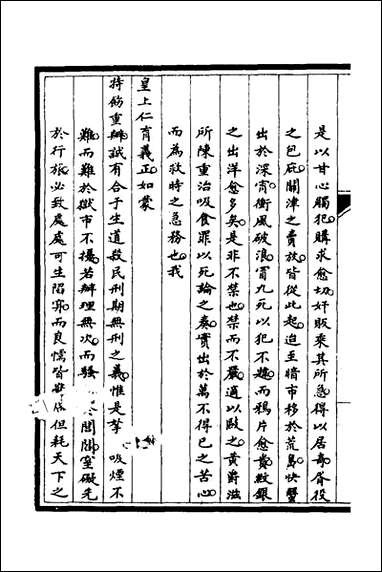 是以甘心觸犯購求愈切奸販乘其所急得以居奇胥役
之包庇關津之賣放皆從此起迨至暗市移於荒島快蟹
出於深宵衝風破浪冒九死以犯不韙而鴉片愈貴紋銀
之出洋愈多矣是非不禁也禁而不嚴適以敺之黃爵滋
所陳重治吸食罪以死論之奏實出於萬不得已之苦心
而為救時之急務也我
皇上仁育義正如蒙
持飭重辦誠有合乎生道殺民刑期無刑之義惟是拏 吸煙不
難而難於獄市不擾若辦理無次而騷 閭閻窒礙先
於行旅必致處處可生陷穽而良懦皆 但耗天下之